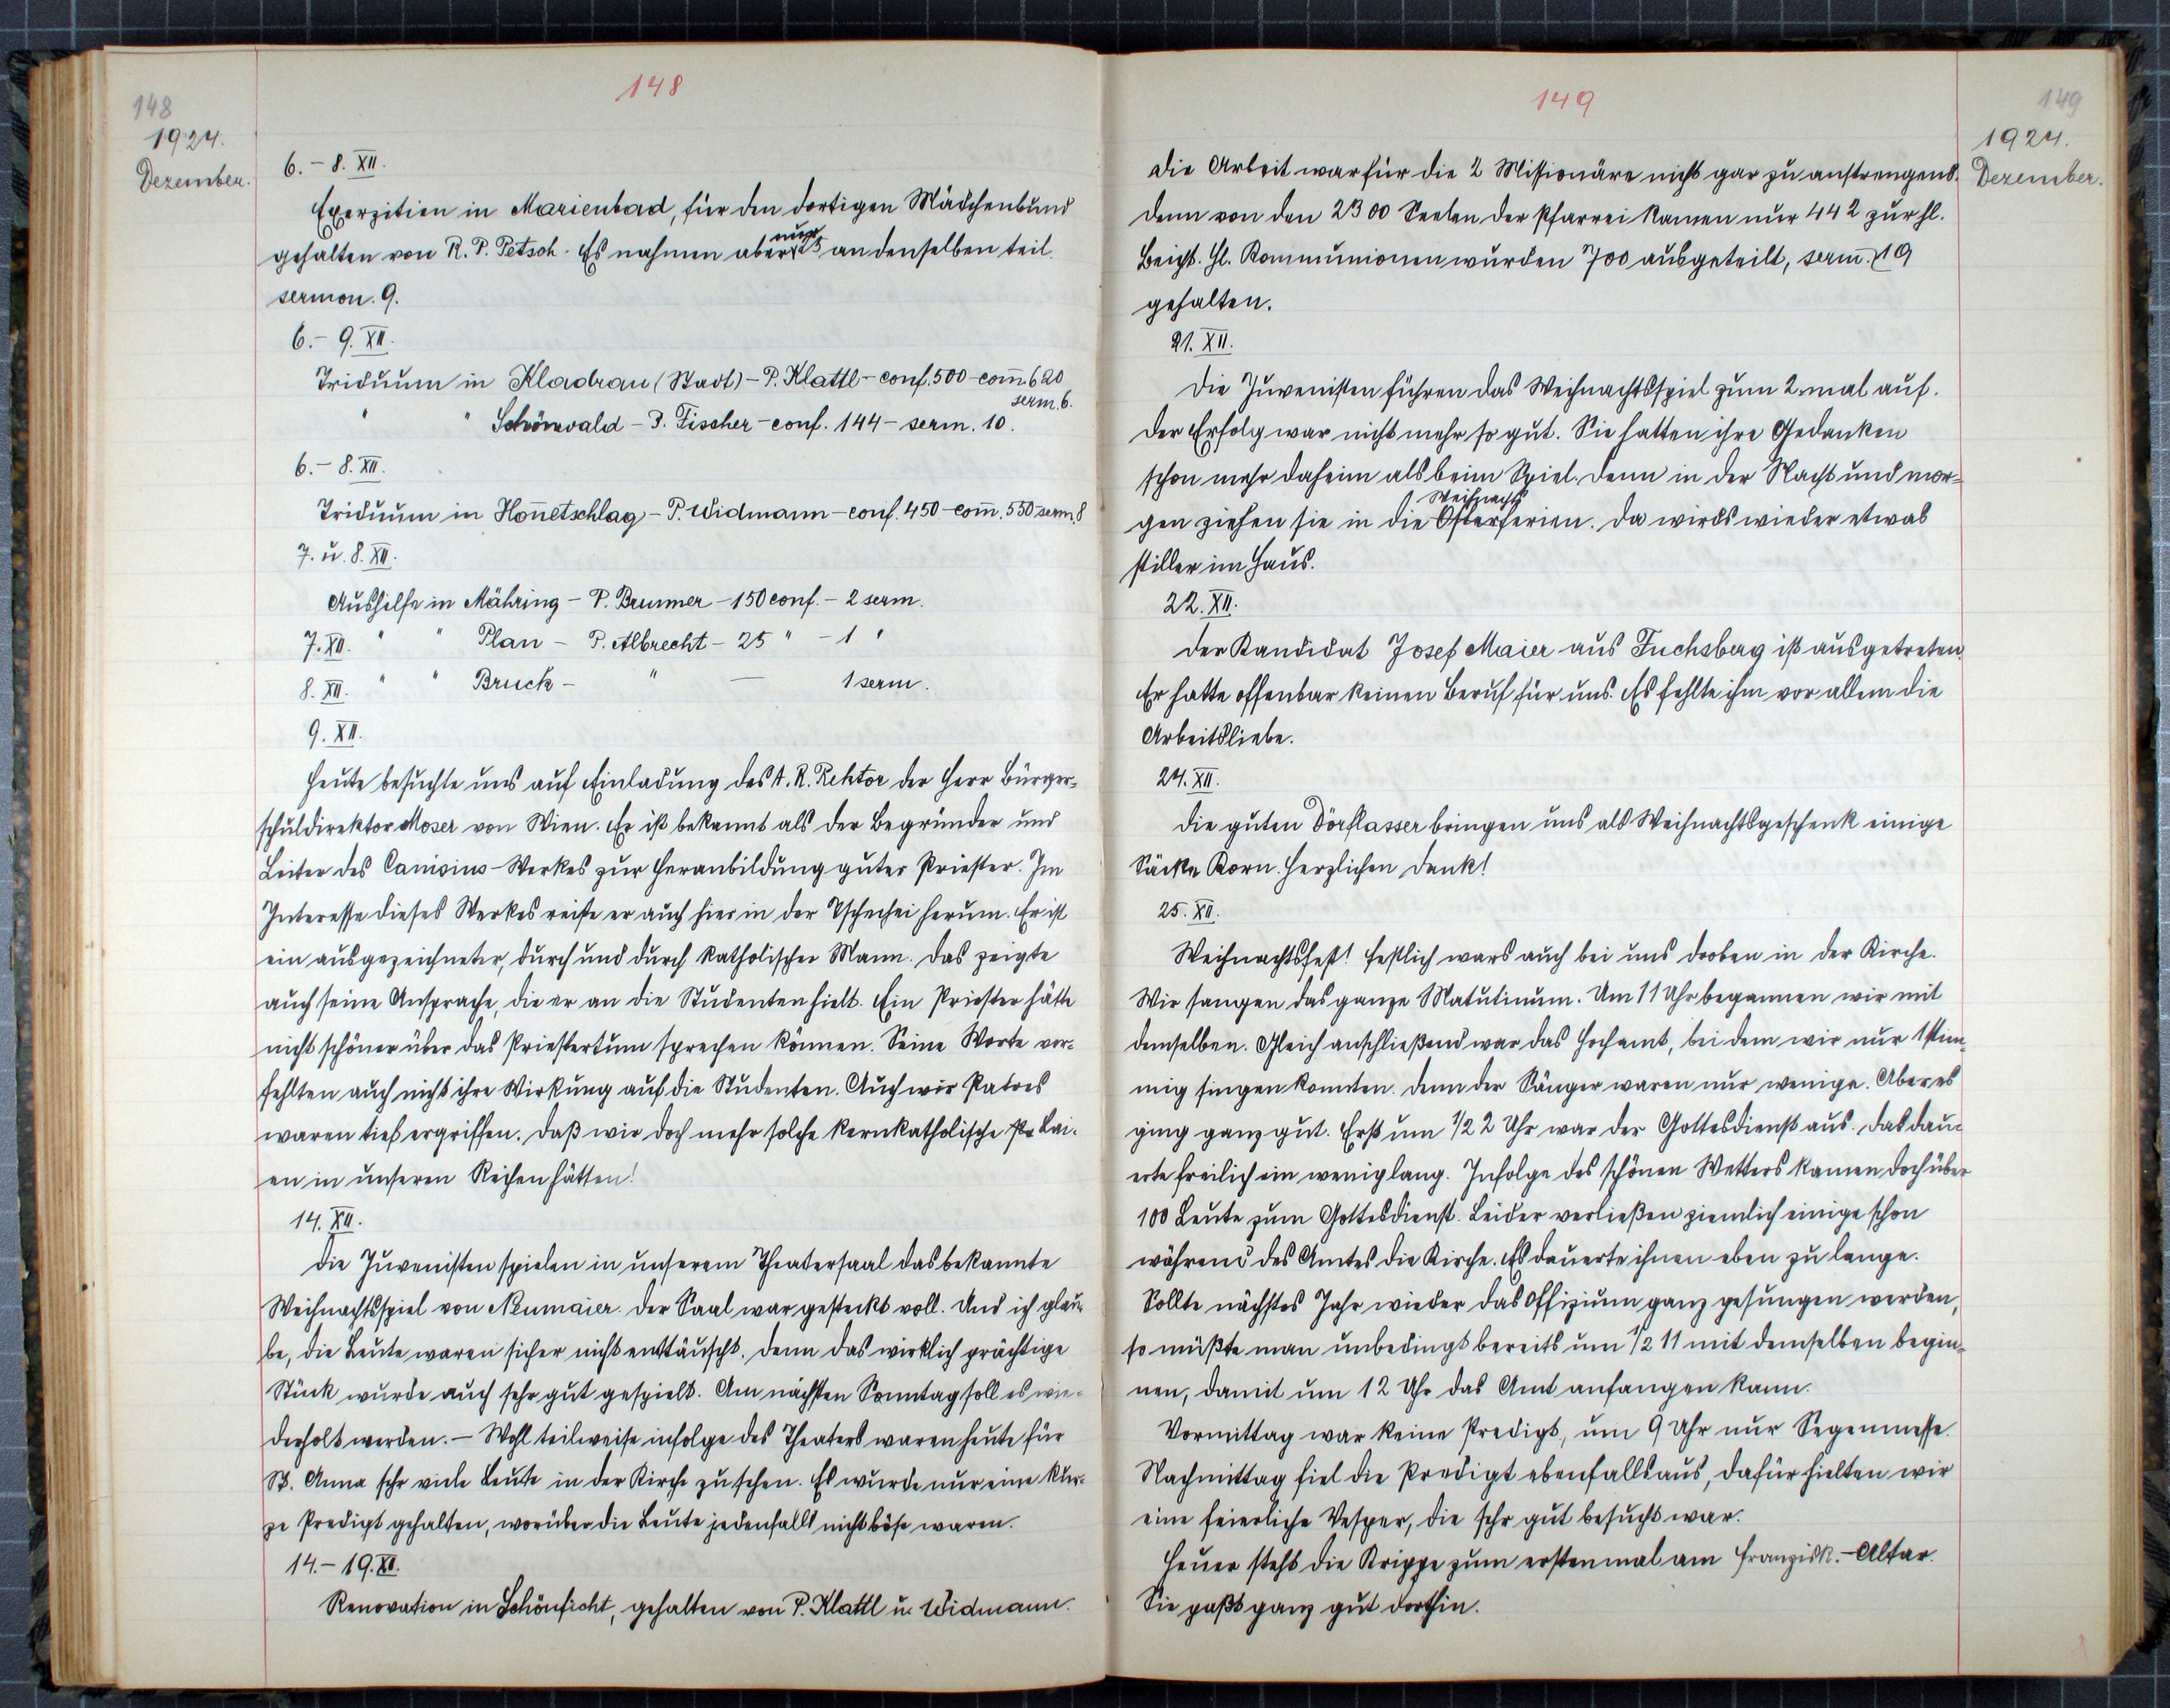 148
148
1924.
Dezember.
6. - 8. XII.
Exerzitien in Marienbad, für den dortigen Mädchenbund
nur
gehalten von R. P. Petsch. Es nahmen aber 25 an denselben teil.
sermon. 9.
6. - 9. XII.
Triduum in Kladrau (Stadt) - P. Klattl - conf. 500 - com̄. 620
serm. 6.
" " Schönwald - P. Fischer - conf. 144 - serm. 10.
6. - 8. XII.
Triduum in Hon̄etschlag - P. Widmann - conf. 450 - com̄. 550 - serm. 8
7. u. 8. XII.
Aushilfe in Mähring - P. Brunner - 150 conf. - 2 serm.
7. XII. " " Plan - P. Albrecht - 25 " - 1 "
8. XII. " " Bruck - " — 1 serm.
9. XII.
Heute besuchte uns auf Einladung des A. R. Rektor der Herr Bürger-
schuldirektor Moser von Wien. Er ist bekannt als der Begründer und
Leiter des Canisius-Werkes zur Heranbildung guter Priester. Im
Interesse dieses Werkes reiste er auch hier in der Tschechei herum. Er ist
ein ausgezeichneter, durch und durch katholischer Mann. Das zeigte
auch seine Ansprache, die er an die Studenten hielt. Ein Priester hätte
nicht schöner über das Priestertum sprechen können. Seine Worte ver-
fehlten auch nicht ihre Wirkung auf die Studenten. Auch wir Patres
waren tief ergriffen. Daß wir doch mehr solche kernkatholische Lai-
en in unseren Reihen hätten!
14. XII.
Die Juvenisten spielen in unserem Theatersaal das bekannte
Weihnachtsspiel von Neumaier. Der Saal war gesteckt voll. Und ich glau-
be, die Leute waren sicher nicht enttäuscht. Denn das wirklich prächtige
Stück wurde auch sehr gut gespielt. Am nächsten Sonntag soll es wie-
derholt werden. — Wohl teilweise infolge des Theaters waren heute für
St. Anna sehr viele Leute in der Kirche zu sehen. Es wurde nur eine kur-
ze Predigt gehalten, worüber die Leute jedenfalls nicht böse waren.
14. - 19. XII.
Renovation in Schönficht, gehalten von P. Klattl u. Widmann.
149
149
1924.
Dezember.
Die Arbeit war für die 2 Missionäre nicht gar zu anstrengend.
Denn von den 2300 Seelen der Pfarrei kamen nur 442 zur hl.
Beicht. Hl. Kommunionen wurden 700 ausgeteilt, serm. 19
gehalten.
21. XII.
Die Juvenisten führen das Weihnachtsspiel zum 2. mal auf.
Der Erfolg war nicht mehr so gut. Sie hatten ihre Gedanken
schon mehr daheim als beim Spiel. Denn in der Nacht und mor-
Weihnachts
gen ziehen sie in die Osterferien. Da wirds wieder etwas
stiller im Haus.
22. XII.
Der Kandidat Josef Maier aus Fuchsberg ist ausgetreten.
Er hatte offenbar keinen Beruf für uns. Es fehlte ihm vor allem die
Arbeitsliebe.
24. XII.
Die guten Dörflasser bringen uns als Weihnachtsgeschenk einige
Säcke Korn. Herzlichen Dank!
25. XII.
Weihnachtsfest! Festlich wars auch bei uns droben in der Kirche.
Wir sangen das ganze Matutinum. Um 11 Uhr begannen wir mit
demselben. Gleich anschließend war das Hochamt, bei dem wir nur 1 stim-
mig singen konnten. Denn der Sänger waren nur wenige. Aber es
ging ganz gut. Erst um 1/2 2 Uhr war der Gottesdienst aus. Das dau-
erte freilich ein wenig lang. Infolge des schönen Wetters kamen doch über
100 Leute zum Gottesdienst. Leider verließen ziemlich einige schon
während des Amtes die Kirche. Es dauerte ihnen eben zu lange.
Sollte nächstes Jahr wieder das Offizium ganz gesungen werden,
so müßte man unbedingt bereits um 1/2 11 mit demselben begin-
nen, damit um 12 Uhr das Amt anfangen kann.
Vormittag war keine Predigt, um 9 Uhr nur Segenmesse.
Nachmittag fiel die Predigt ebenfalls aus, dafür hielten wir
eine feierliche Vesper, die sehr gut besucht war.
Heuer steht die Krippe zum erstenmal am Franzisk.-Altar.
Sie paßt ganz gut dorthin.